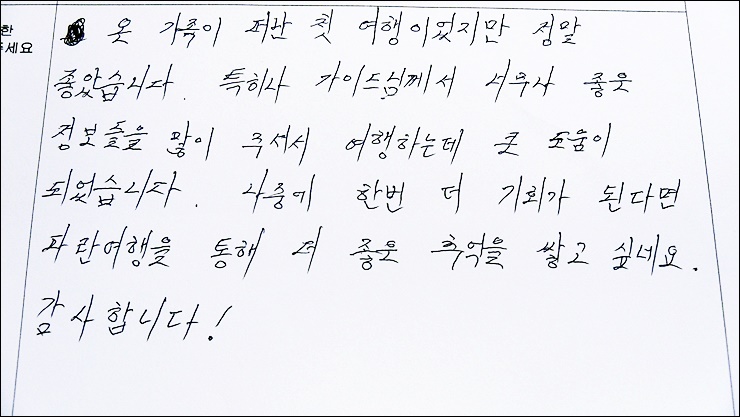 온 가족이 떠난 첫 여행이었지만 정말
좋았습니다. 특히나 가이드님께서 너무나 좋은
정보들을 많이 주셔서 여행하는데 큰 도움이
되었습니다. 나중에 한번 더 기회가 된다면
파란여행을 통해 더 좋은 추억을 쌓고 싶네요.
감사합니다!